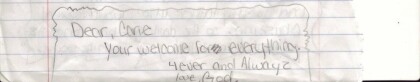 Dear, Corie
Your welcome for everything.
4ever and Always
love,